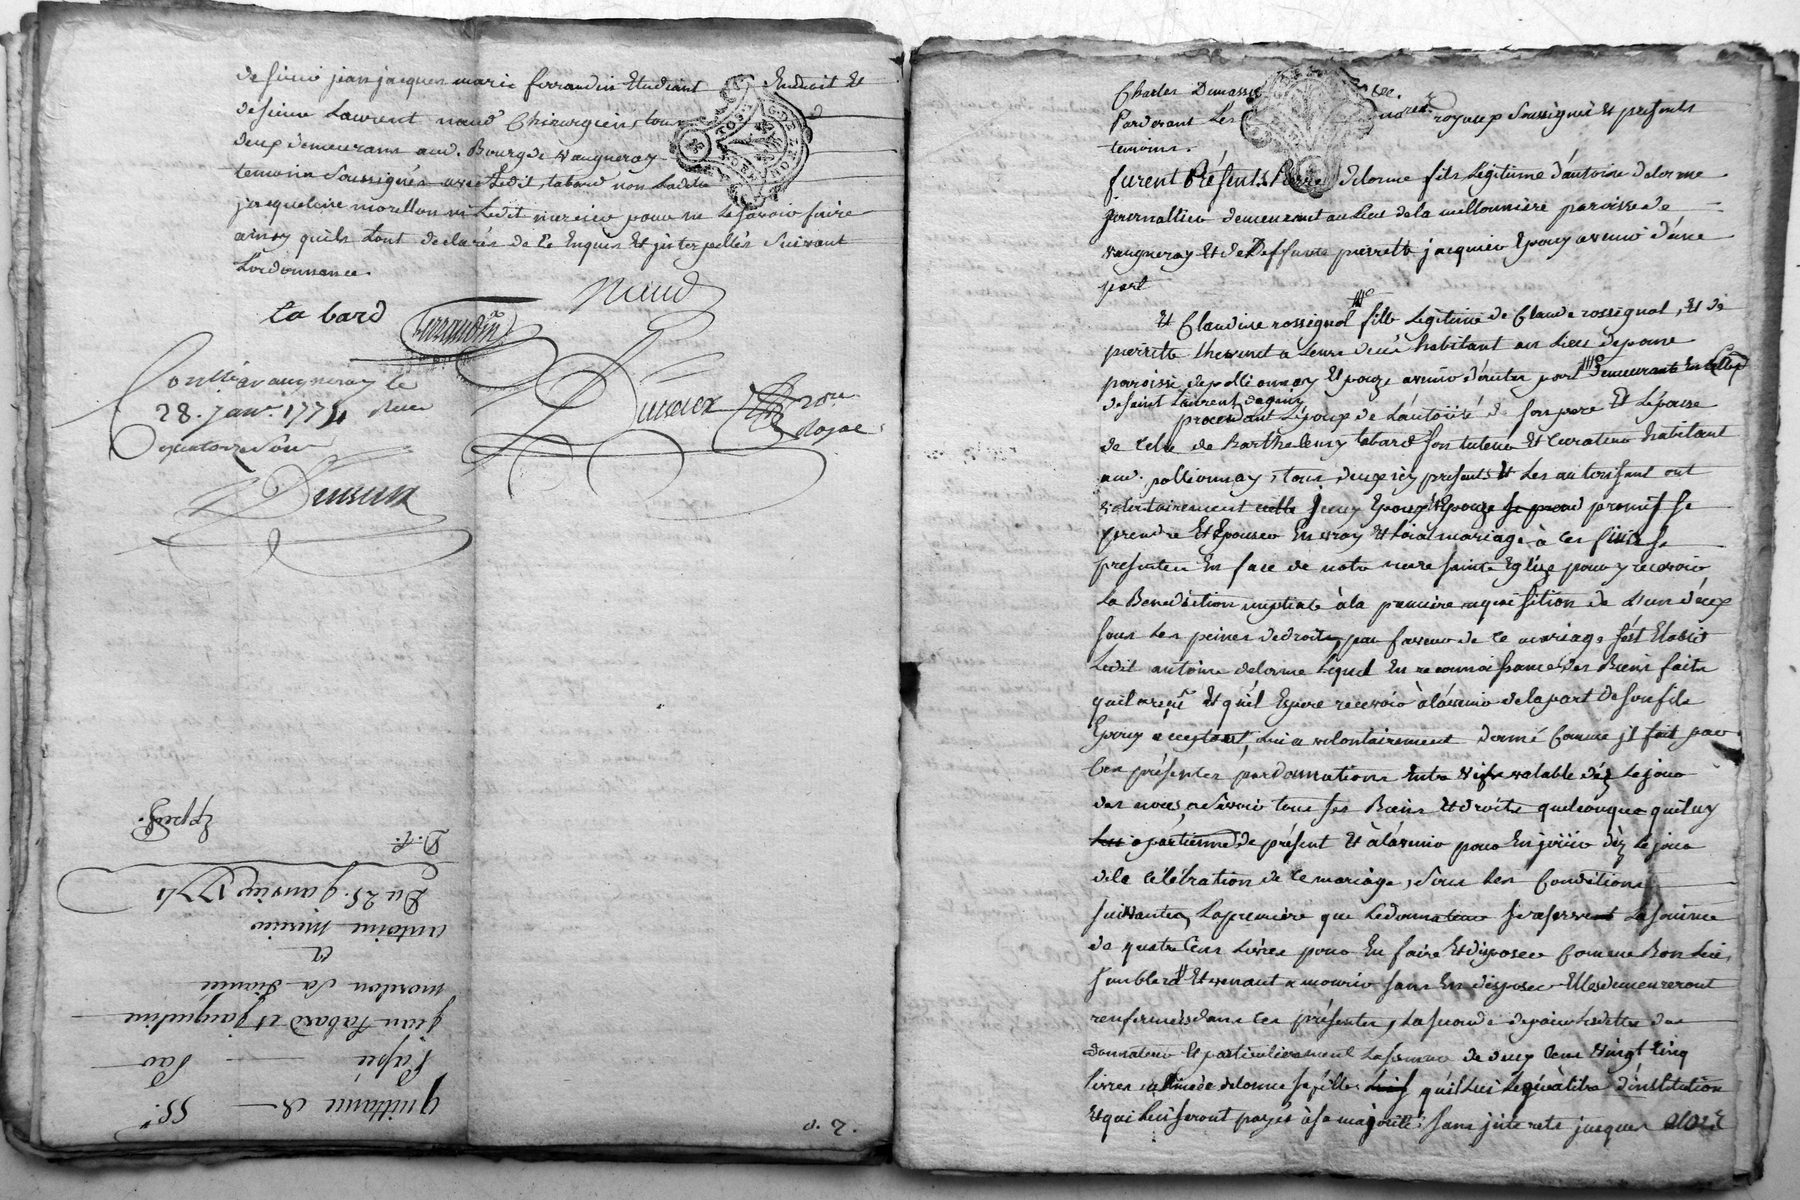 de sieur jean jacques marie ferrandin Etudiant Endroit Et
de sieur Laurent naud Chirurgien, tous
deux demeurans aud. Bourg de vaugneray
temoins soussignés avec Ledit tabard non Ladite
jacqueline morellon ni Ledit mercier pour ne Le savoir faire
ainsy quils Lont declarés de ce Enquis Et jnterpellés suivant
Lordonnance
naud
tabard
ferrandin
Contllé a vaugneray le
28. janv. 1774 Reçu
quatorze sous
quittance de
passé
par
jean tabard et jacqueline
morellon sa fiancée
a
antoine mercier
Du 25. janvier 1774
D. C.
Exped.
Charles Dumas
Pardevant Les nores royaux soussignés Et présents
temoins.
furent Présents Pierre delorme fils Légitime d'antoine delorme
journallier demeurant au Lieu de la millonniere paroisse de
vaugneray Et de Deffunte pierrette jacquier Epoux avenir d'une
part
Et Claudine rossignol fille Légitime de Claude rossignol, Et de
pierrette thevenet a Leurs vivant habitant au Lieu de
paroisse de pollionnay Epouze avenir d'autre part demeurante En Celle
de saint Laurent de
procedant L'époux de Lautorité de son pere Et Lépouse
de Celle de Barthelemy tabard son tuteur Et Curateur habitant
aud. pollionnay, tous deux icy présents Et Les autorisant ont
volontairement promis se
prendre Et Epouser En vray Et Loial mariage à Ces fins se
presenter En face de notre mere sainte Eglize pour y recevoir
La Benediction nuptiale à la premiere requisition de L'un d'eux
sous Les peines de droits, par faveur de ce mariage s'est Etabli
Ledit antoine delorme Lequel En reconnoissance des Biens faits
quil a reçu Et qu'il Espere recevoir à l'avenir de la part de son fils
Epoux acceptant, Lui a volontairement donné Comme jl fait par
Ces présentes par donnations Entre vifs valable dès Le jour
des noces a savoir tous ses Biens Et droits quelconque qui luy
apartienne de présent Et à l'avenir pour En joüir dès Le jour
de la Célébration de ce mariage, sous Les Conditions
suivantes, La premiere que Le donnateur se reserve La somme
de quatre Cens Livres pour En faire Et disposer Comme Bon Lui
semblera Et venant a mourir sans En disposer Elles demeureront
renfermés dans Ces présentes, La seconde de paier Les dettes du
donnateur Et particulierement La somme de deux Cens vingt Cinq
Livres a delorme sa fille quil Lui Legue à titre d'institution
Et qui Lui seront payés à sa majorité sans jnterets jusques alors